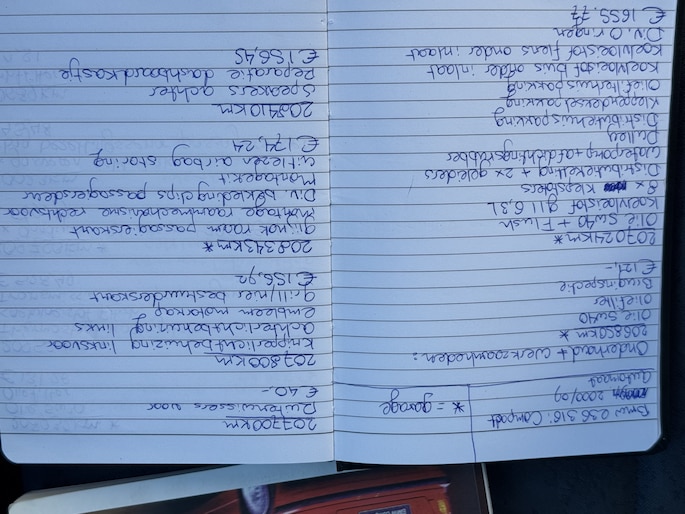 BMW E36 316i Compact
2000/09
Automaat
* = garage
Onderhoud + werkzaamheden:
206850km *
Olie 5W40
Oliefilter
Bruginspectie
€ 121,-
207024km *
Olie 5W40 + Flush
Koelvloeistof g11 6,3L
8x klepstoters
Distributieketting + 2x geleiders
Waterpomp + afdichtingsrubber
Pulley
Distributiehuispakking
Kleppendekselpakking
Oliefilterhuispakking
Koelvloeistof buis onder inlaat
Koelvloeistof flens onder inlaat
Div. O ringen
€ 1655,77
207700km
Ruitenwissers voor
€ 40,-
207800km
Knipperlichtbehuizing linksvoor
achterlichtbehuizing links
embleem motorkap
grill/nier bestuurderskant
€ 156,92
208343km *
raam passagierskant
Montage raammechanisme rechtsvoor
Div. bekledingclips passagiersdeur
Montagekit
Uitlezen airbag storing
€ 174,24
208410km
Speakers achter
Reparatie dashboardkastje
€ 156,45